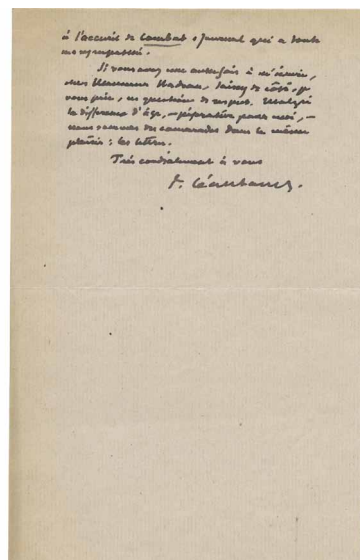 à l'accueil de Combat, journal qui a toute
ma sympathie.
Si vous avez une autre fois à m'écrire,
cher Monsieur Nadeau, laissez de côté, je
vous prie, les questions de respect. Malgré
la différence d'âge, – péjorative pour moi, –
nous sommes des camarades dans le même
plaisir : les lettres.
Très cordialement à vous
P. Léautaud.